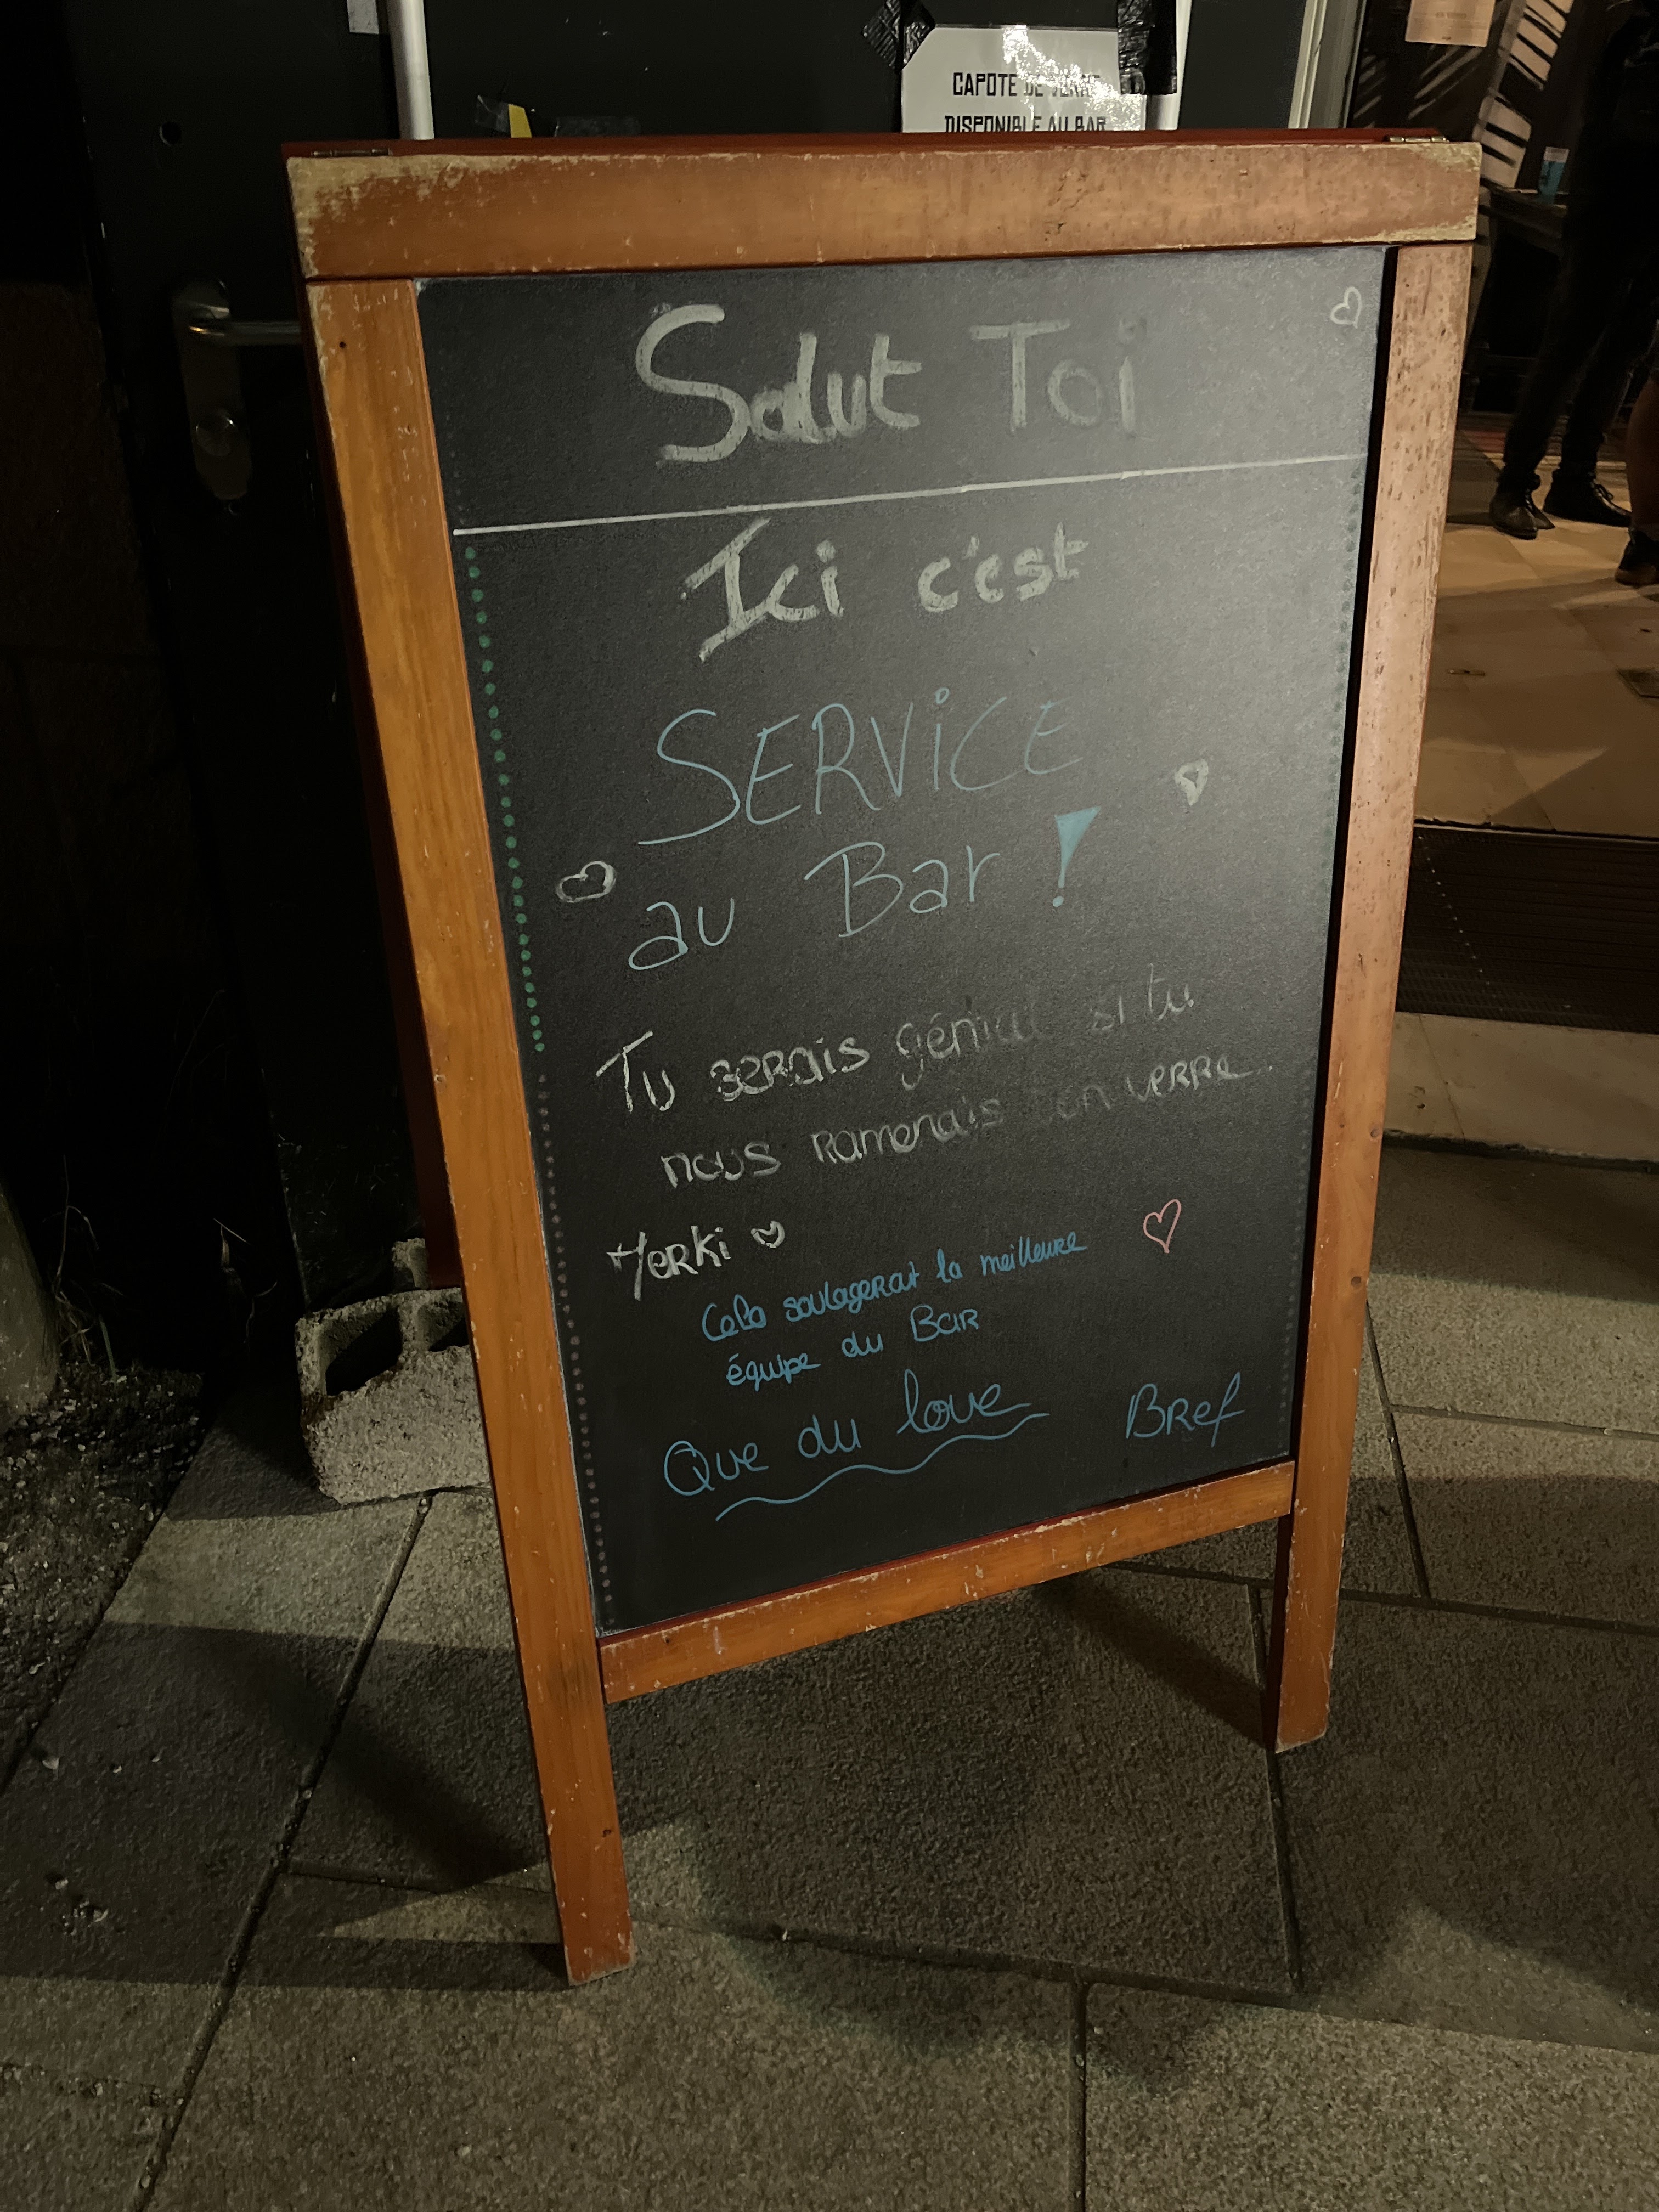 CAPOTE DE VERRE
DISPONIBLE AU BAR
Salut Toi
Ici c'est
SERViCE
au Bar !
Tu serais génial si tu
nous ramenais ton verre
Merki
Cela soulagerait la meilleure
équipe du Bar
Que du love
Bref